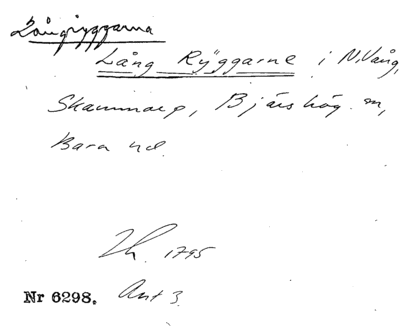 Långryggarna
Lång Rÿggarne i N. Vång,
Skammarp, Bjärshög sn,
Bara hd.
Zh. 1795
Nr 6298. Ant 3.